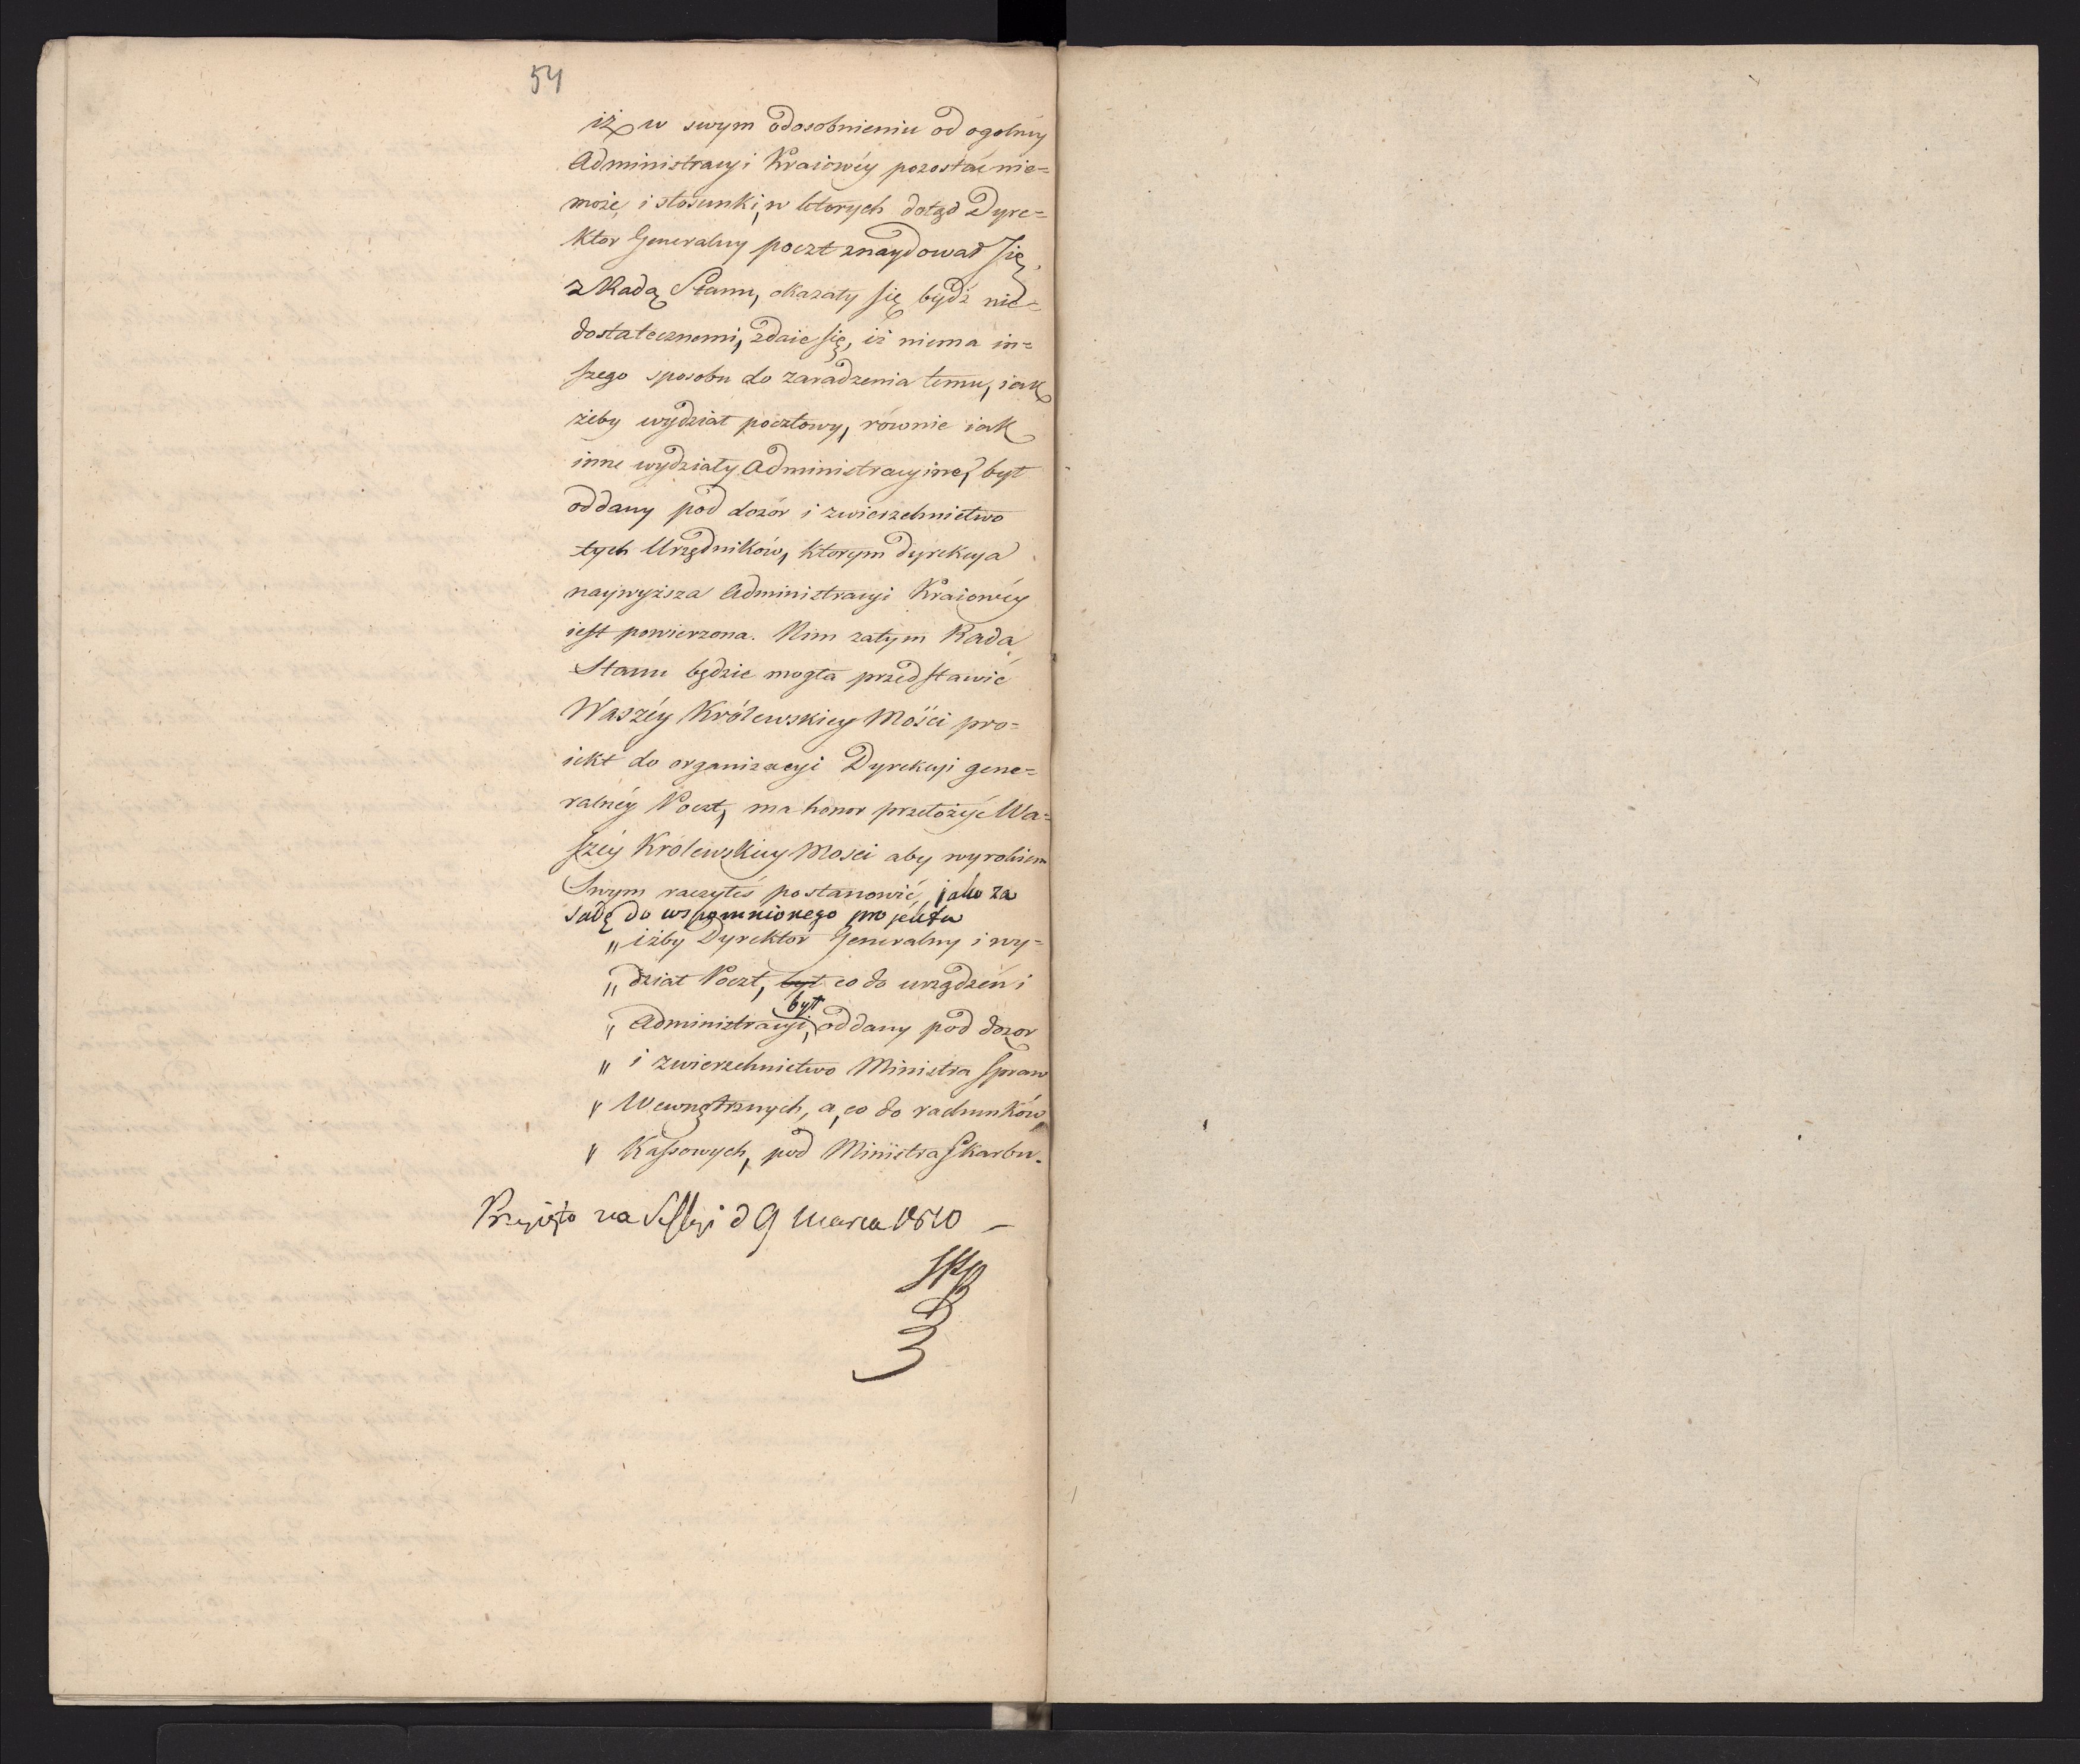 54
iż w swym odosobnieniu od ogolnéy
Administracyi Kraiowéy pozostać nie=
może, i stosunki, w ktorych dotąd Dyre=
ktor Generalny poczt znaydował się,
z Radą Stanu, okazały się bydź nie=
dostatecznemi, zdaie się, iż niema in=
szego sposobu do zaradzenia temu, iak
żeby wydział pocztowy, równie iak
inne wydziały Administracyine, był
oddany pod dozór i zwierzchnictwo
tych Urzędników, ktorym Dyrekcya
naywyższa Administracyi Kraiowéy
iest powierzona. Nim zatym Rada
Stanu będzie mogła przedstawić
Waszéy Królewskiey Mości pro=
iekt do organizacyi Dyrekcyi gene=
ralnéy Poczt, ma honor przełożyć Wa=
széy Krolewskiey Mosci aby wyrokiem
Swym raczyłeś postanowić, jako za
sadę do wspomnionego projektu
„ iżby Dyrektor Generalny i wy=
„ dział Poczt, był co do urządzeń i
był
„ Administracyi, oddany pod dozor
„ i zwierzchnictwo Ministra Spraw
„ Wewnętrznych, a, co do rachunków
„ Kassowych, pod Ministra Skarbu.
Przyięto na Sessyi d 9 Marca 1810 —